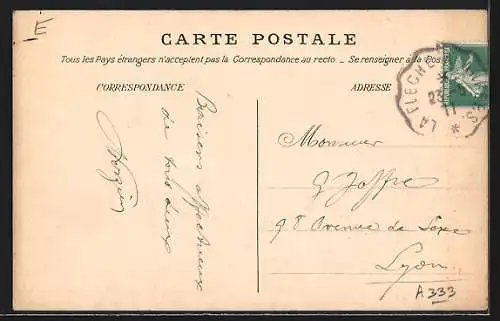 E
CARTE POSTALE
Tous les Pays étrangers n'acceptent pas la Correspondance au recto. _ Se renseigner à la Poste
CORRESPONDANCE
ADRESSE
LA FLECHE
23
11
Baisers affectueux
de tous deux
Monsieur
J Joffre
98 Avenue de Saxe
Lyon
A 333